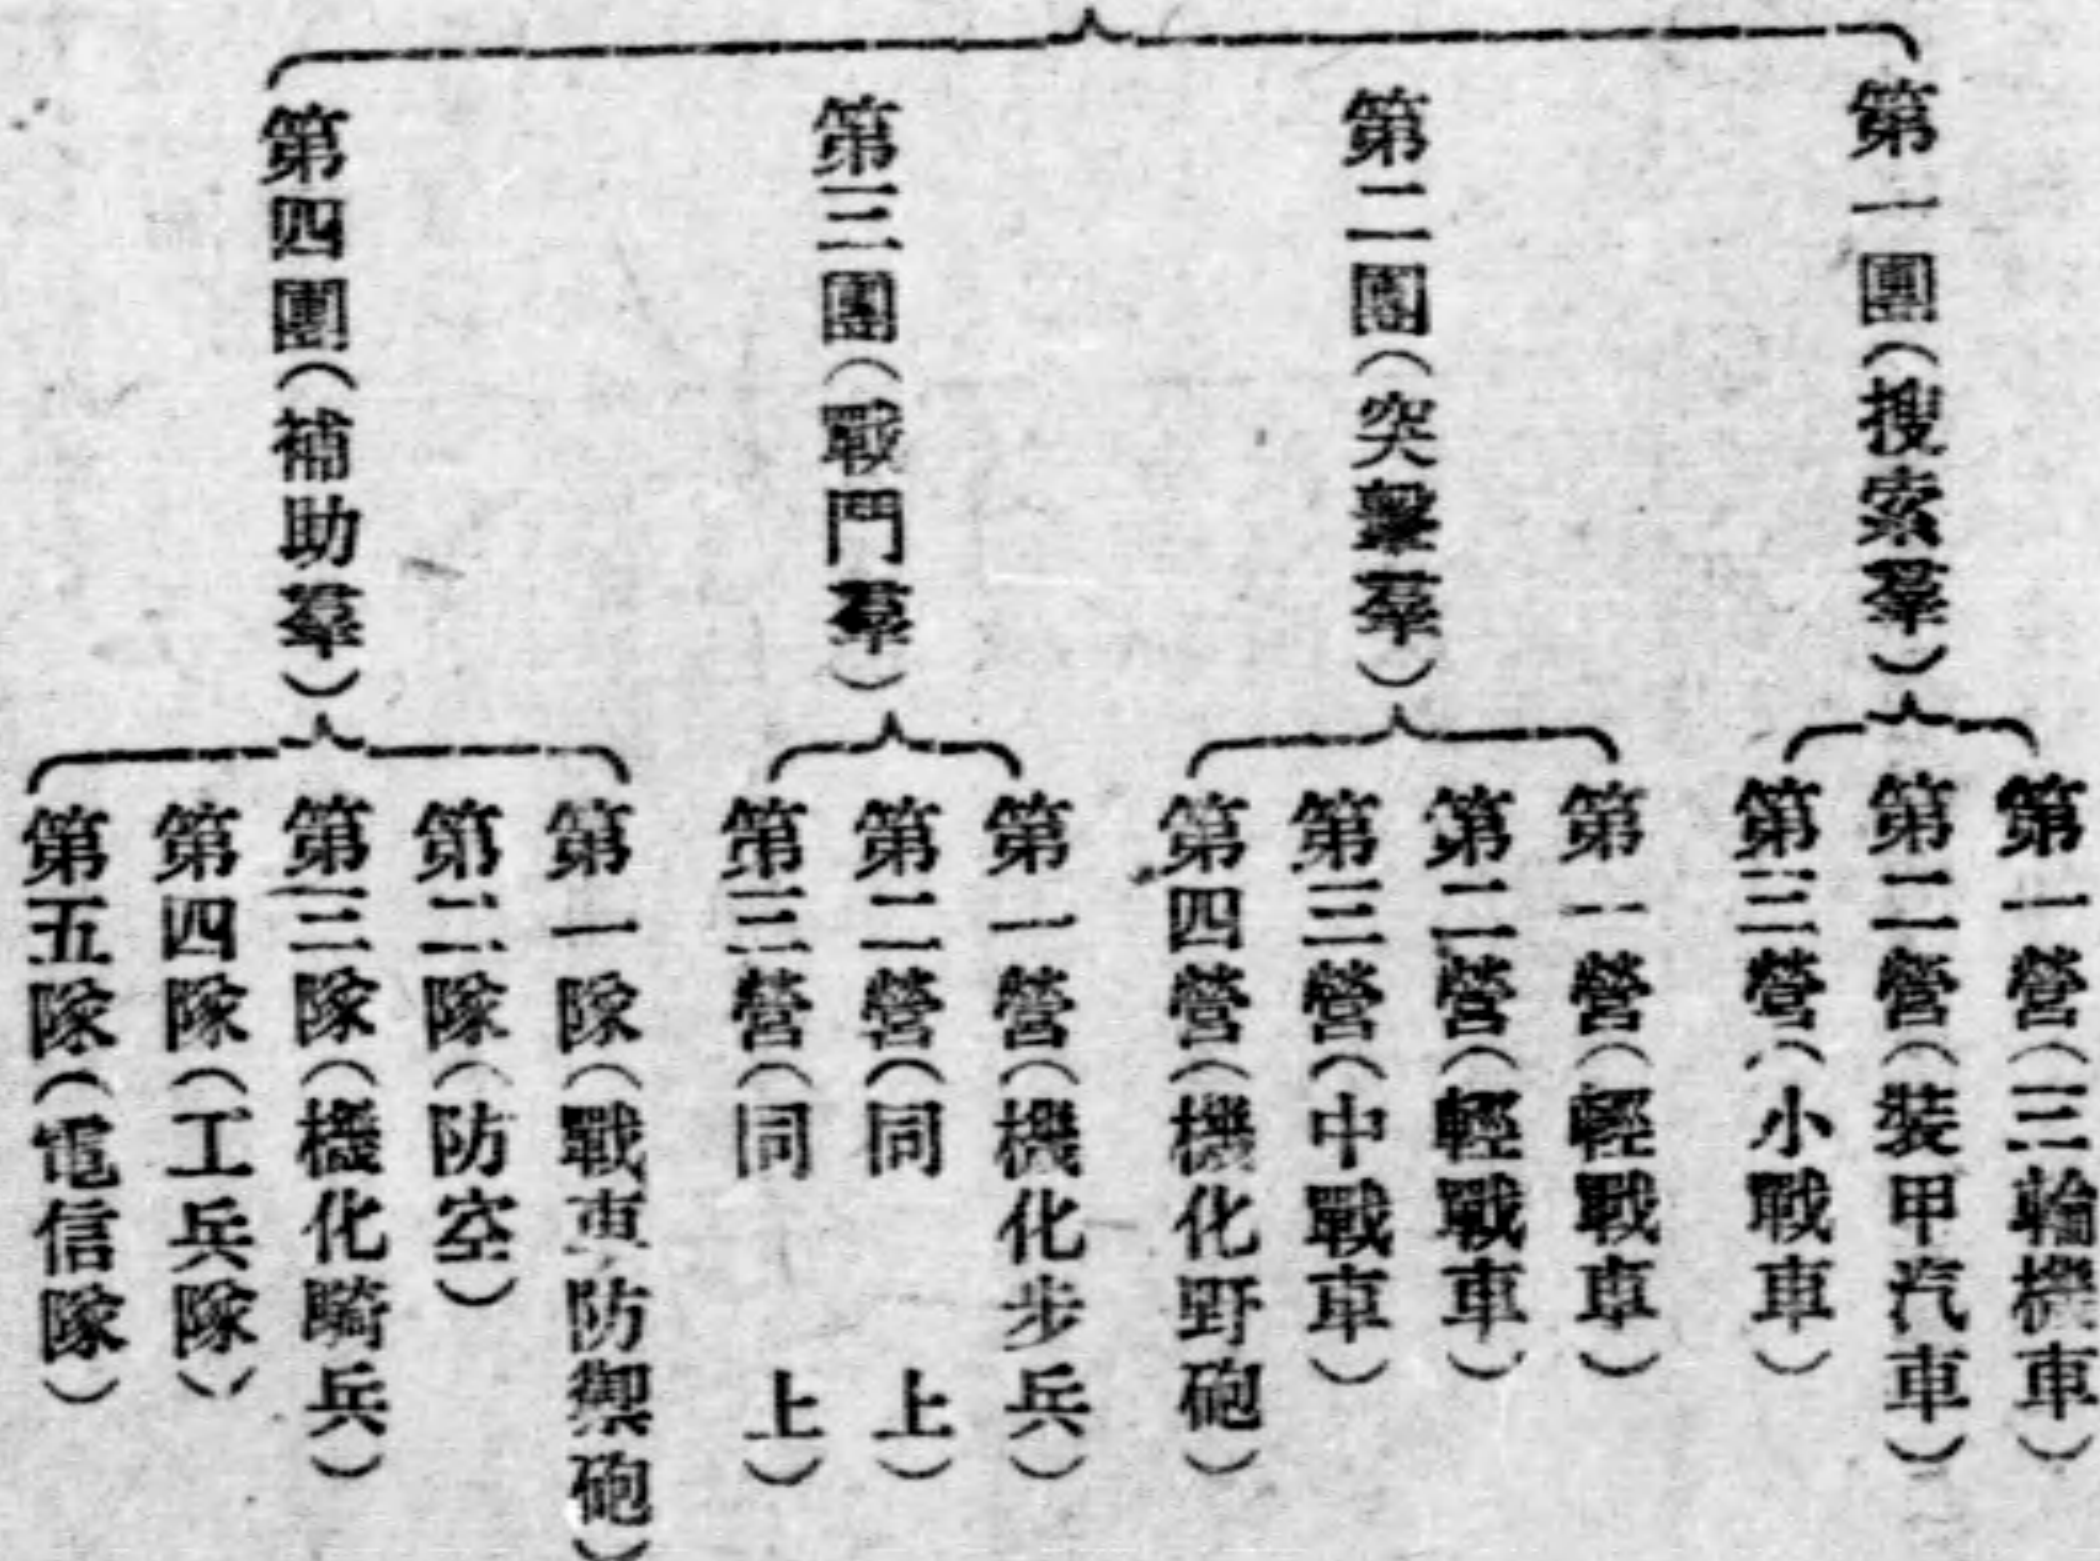 第一團(搜索羣)
第一營(三輪機車)
第二營(裝甲汽車)
第三營(小戰車)
第二團(突擊羣)
第一營(輕戰車)
第二營(輕戰車)
第三營(中戰車)
第四營(機化野砲)
第三團(戰鬥羣)
第一營(機化步兵)
第二營(同上)
第三營(同上)
第四團(補助羣)
第一隊(戰車防禦砲)
第二隊(防空)
第三隊(機化騎兵)
第四隊(工兵隊)
第五隊(電信隊)